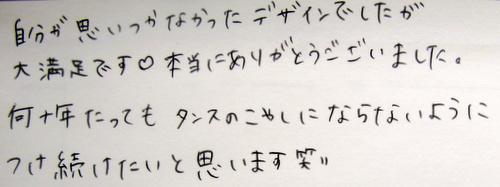 自分が思いつかなかったデザインでしたが
大満足です♡本当にありがとうございました。
何十年たってもタンスのこやしにならないように
つけ続けたいと思います笑〃